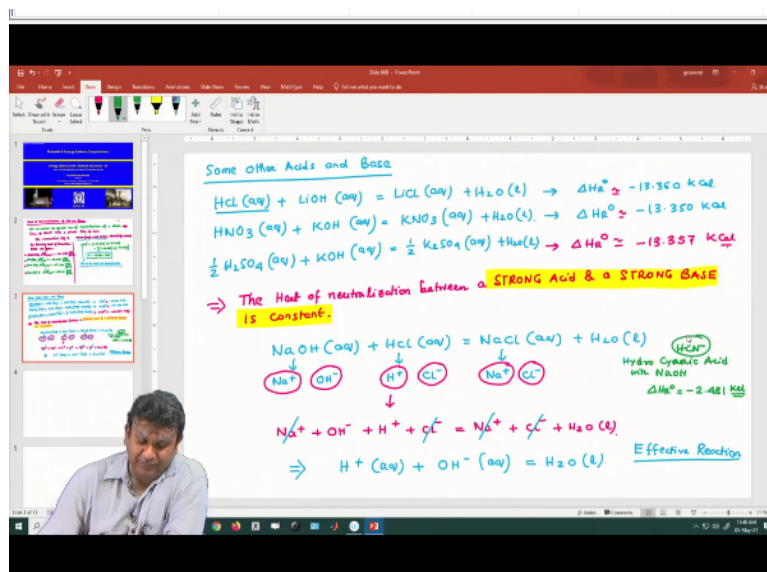 Slide 805 - PowerPoint
File Home Insert Draw Design Transitions Animations Slide Show Review View MathType Help Tell me what you want to do
Select Draw with Touch Eraser Lasso Select Add Pen Ruler Ink to Shape Ink to Math
Tools Pens Stencils Convert
Some Other Acids and Base
HCl (aq) + LiOH (aq) = LiCl (aq) + H2O (l) → ΔHR° ≃ -13.360 kCal.
HNO3 (aq) + KOH (aq) = KNO3 (aq) + H2O (l). → ΔHR° ≃ -13.350 kCal
1/2 H2SO4 (aq) + KOH (aq) = 1/2 K2SO4 (aq) + H2O (l) → ΔHR° ≃ -13.357 kCal
⇒ The Heat of neutralization between a STRONG Acid & a STRONG BASE
is constant.
NaOH (aq) + HCl (aq) = NaCl (aq) + H2O (l)
HCN
Hydro Cyanic Acid
with NaOH
ΔHR° = -2.481 kCal
Na+ OH- H+ Cl- Na+ Cl-
Na+ + OH- + H+ + Cl- = Na+ + Cl- + H2O (l).
⇒ H+ (aq) + OH- (aq) = H2O (l)
Effective Reaction
1
2
3
4
5
Notes Comments
11:48 AM